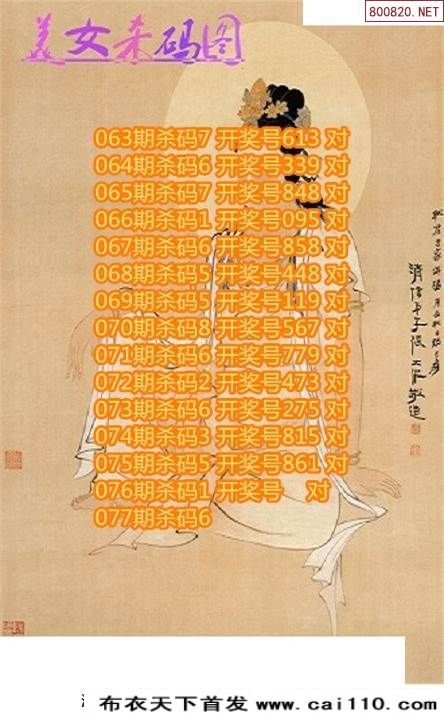 美女杀码图
800820.NET
063期杀码7 开奖号613 对
064期杀码6 开奖号339 对
065期杀码7 开奖号848 对
066期杀码1 开奖号095 对
067期杀码6 开奖号858 对
068期杀码5 开奖号448 对
069期杀码5 开奖号119 对
070期杀码8 开奖号567 对
071期杀码6 开奖号779 对
072期杀码2 开奖号473 对
073期杀码6 开奖号275 对
074期杀码3 开奖号815 对
075期杀码5 开奖号861 对
076期杀码1 开奖号 对
077期杀码6
布衣天下首发 www.cai110.com